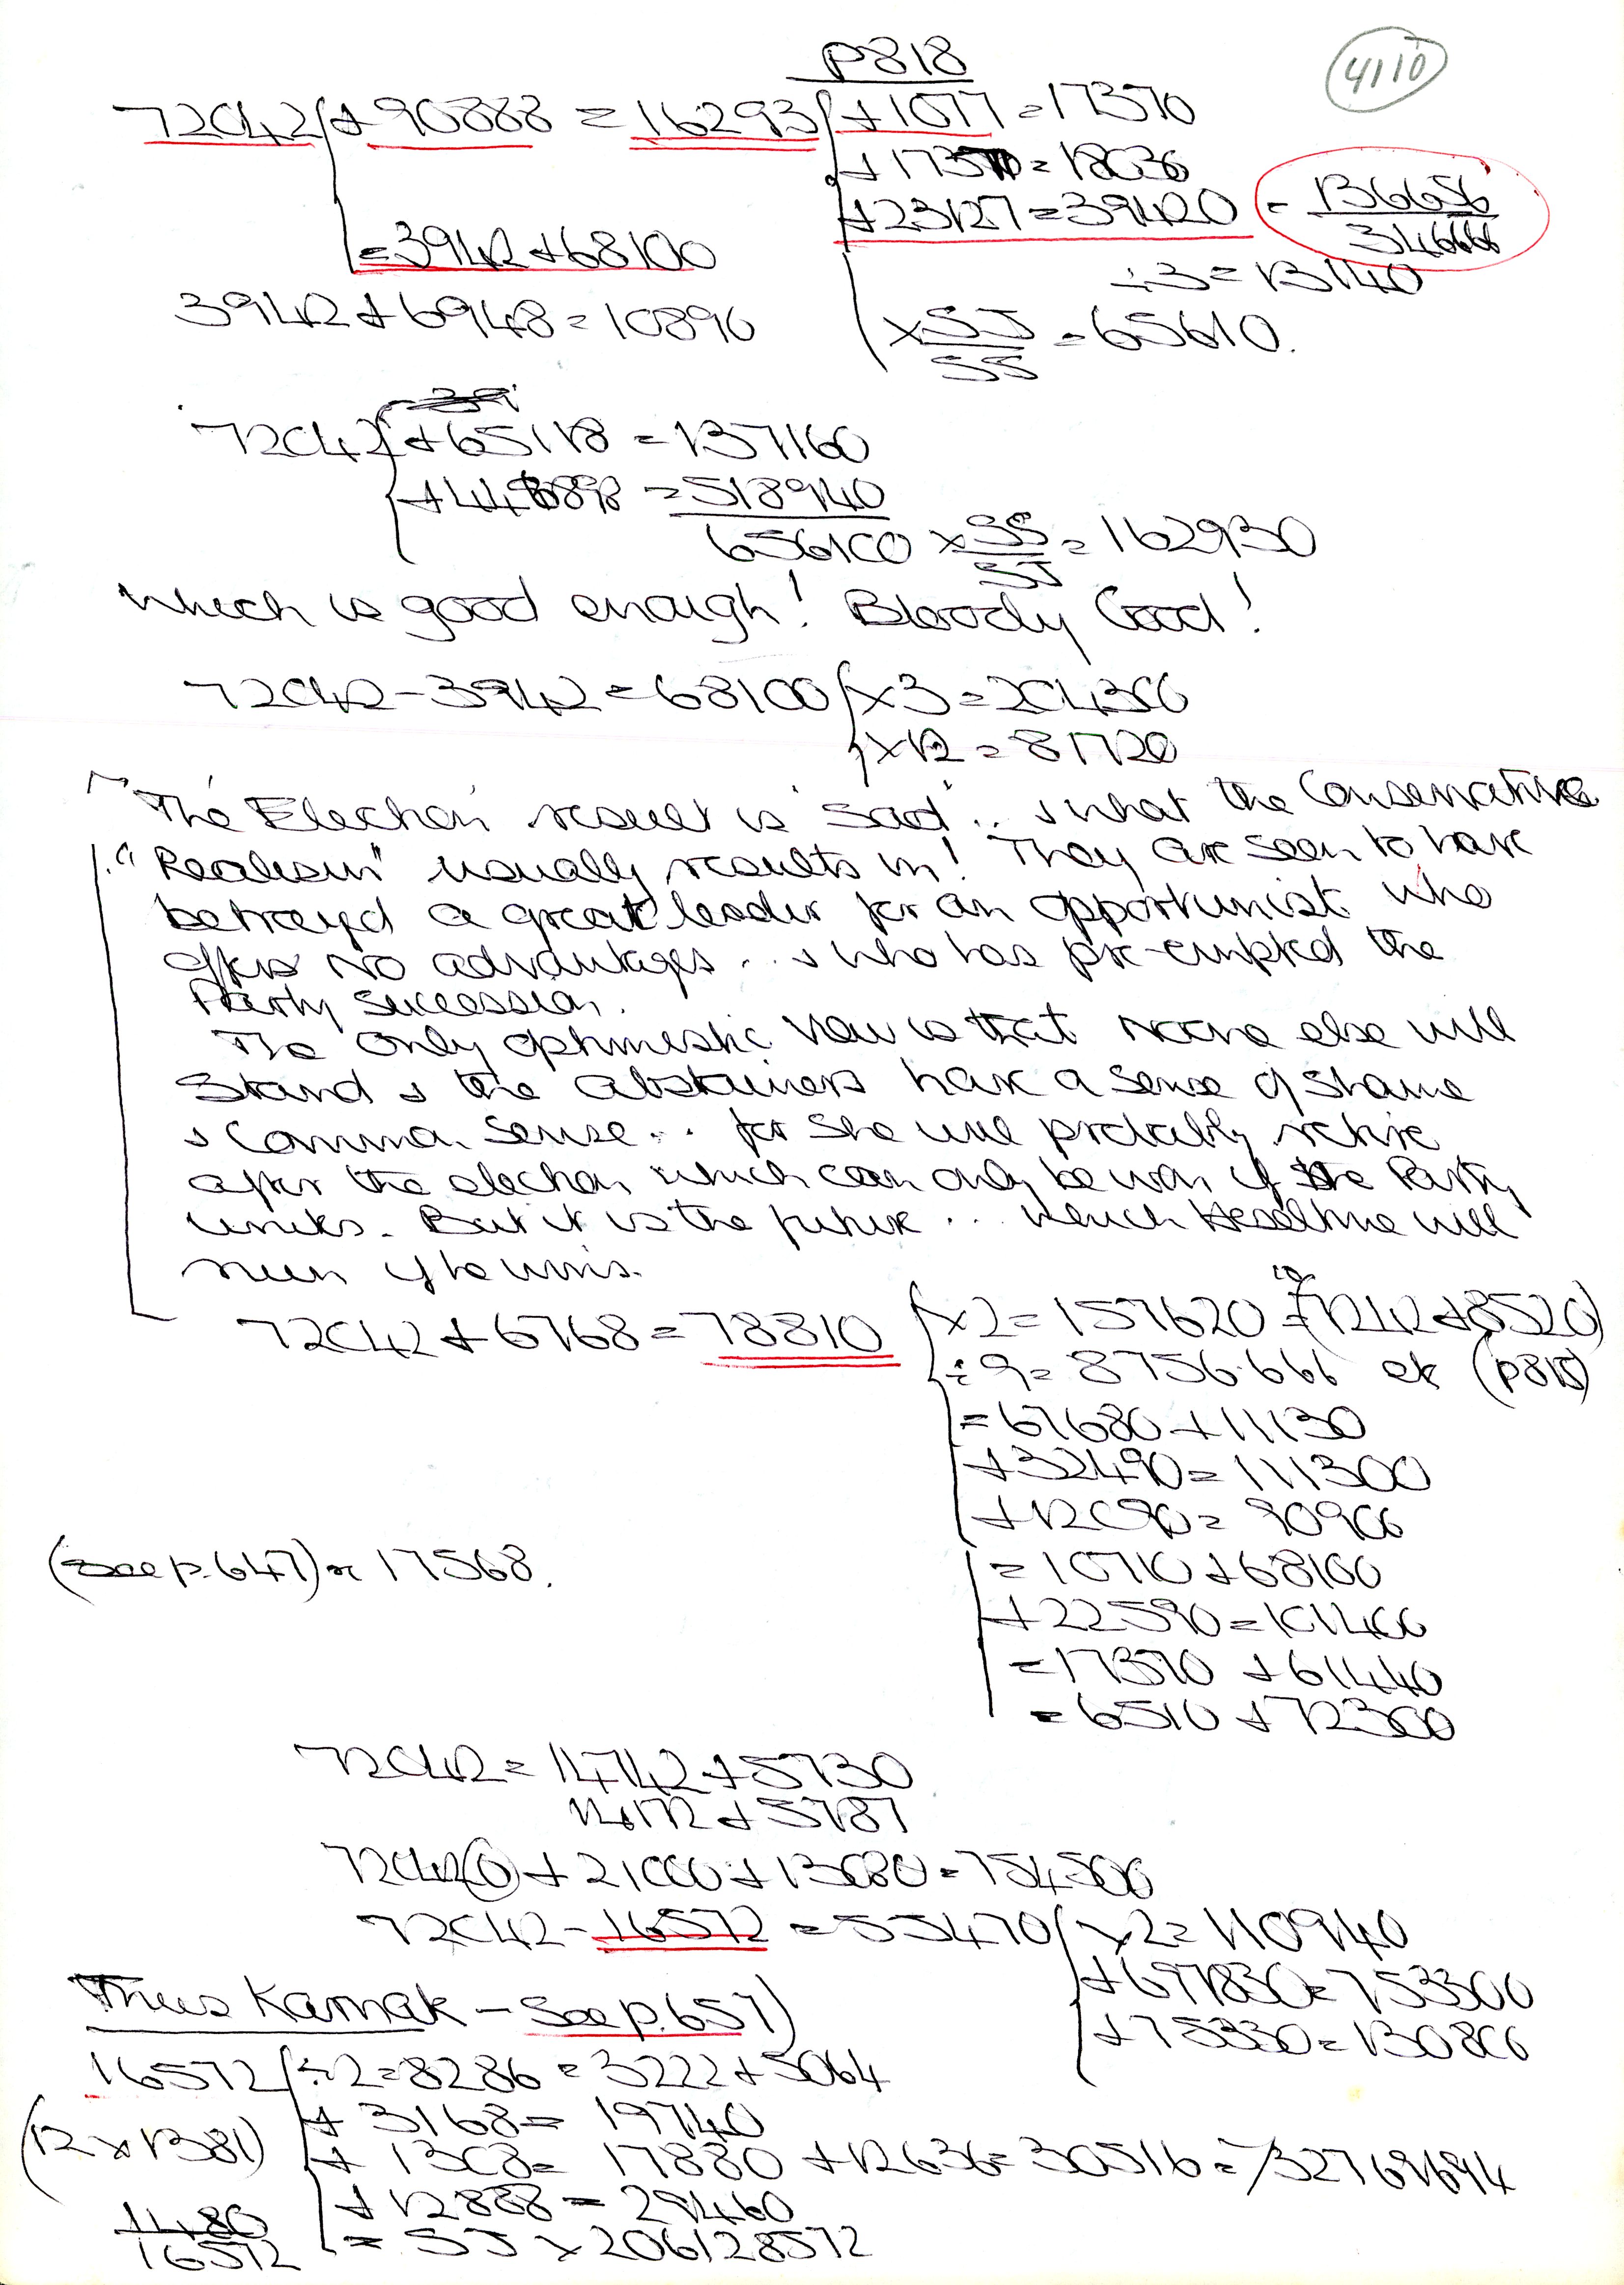 P818
4110
72042 + 90888 = 16293 + 1077 = 17370
+ 17370 = 18036
+ 23127 = 39420 = 136656
346666
= 3942 + 68100
÷ 3 = 13140
3942 + 6948 = 10890
× SJ = 65610.
SS
72042 + 65118 = 137160
+ 446898 = 518940
656100 × SS = 162930
SJ
which is good enough! Bloody Good!
72042 - 3942 = 68100 × 3 = 204300
× 12 = 81720
"The Election result is 'sad'.. & what the Conservative
"Realism" usually results in! They are seen to have
betrayed a great leader for an opportunist who
offers no advantages... & who has pre-empted the
Party sucession.
The only optimistic view is that noone else will
stand & the abstainers have a sense of shame
& common sense... for she will probably retire
after the election which can only be won if the Party
unites. But it is the future... which Heseltine will
ruin if he wins.
72042 + 6768 = 78810 × 2 = 157620 = (7242 + 8520)
÷ 9 = 8756.666 etc (p815)
= 67680 + 11130
+ 32490 = 111300
+ 12090 = 90900
(see p.647) × 17568.
= 10710 + 68100
+ 22590 = 101400
= 17370 + 61440
= 6510 + 72300
72042 = 14742 + 5730
14172 + 5787
72042(0) + 21000 + 13080 = 754500
72042 - 16572 = 55470 × 2 = 110940
+ 697830 = 753300
+ 75330 = 130800
Thus Karnak - see p.657)
16572 ÷ 2 = 8286 = 3222 + 5064
+ 3168 = 19740
(12 × 1381)
+ 1308 = 17880 + 12636 = 30516 = 7/327691694
+ 12888 = 29460
1480
16572
= SJ × 206128572